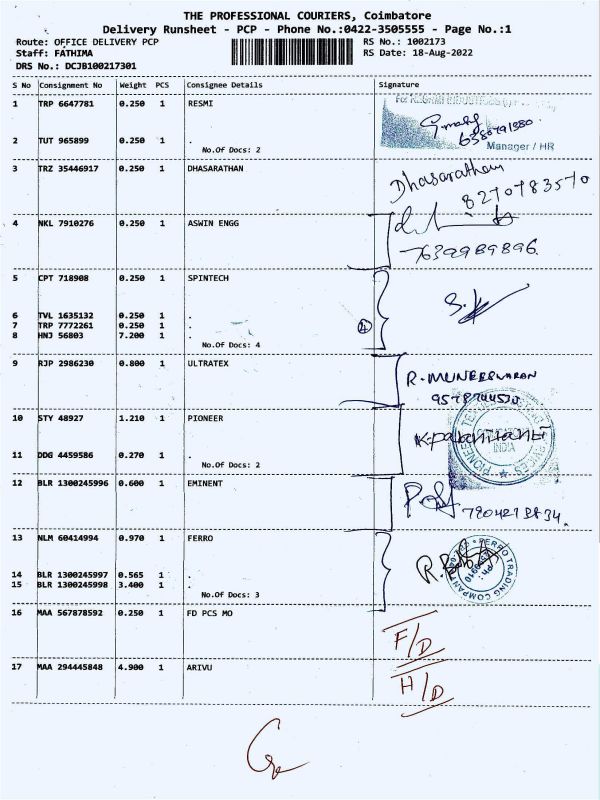 THE PROFESSIONAL COURIERS, Coimbatore
Delivery Runsheet - PCP - Phone No.:0422-3505555 - Page No.:1
Route: OFFICE DELIVERY PCP RS No.: 1002173
Staff: FATHIMA RS Date: 18-Aug-2022
DRS No.: DCJB100217301
S No Consignment No Weight PCS Consignee Details Signature
1 TRP 6647781 0.250 1 RESMI
2 TUT 965899 0.250 1 .
No.Of Docs: 2 Manager / HR
3 TRZ 35446917 0.250 1 DHASARATHAN Dhasarathan
8270783570
4 NKL 7910276 0.250 1 ASWIN ENGG
7639989896
5 CPT 718908 0.250 1 SPINTECH
6 TVL 1635132 0.250 1 .
7 TRP 7772261 0.250 1 . 4
8 HNJ 56803 7.200 1 .
No.Of Docs: 4
9 RJP 2986230 0.800 1 ULTRATEX R. MUNEESWARAN
10 STY 48927 1.210 1 PIONEER
INDIA
11 DDG 4459586 0.270 1 .
No.Of Docs: 2
12 BLR 1300245996 0.600 1 EMINENT
13 NLM 60414994 0.970 1 FERRO
FERRO TRADING COMPANY
14 BLR 1300245997 0.565 1 .
15 BLR 1300245998 3.400 1 .
No.Of Docs: 3
16 MAA 567878592 0.250 1 FD PCS MO F/D
17 MAA 294445848 4.900 1 ARIVU H/D